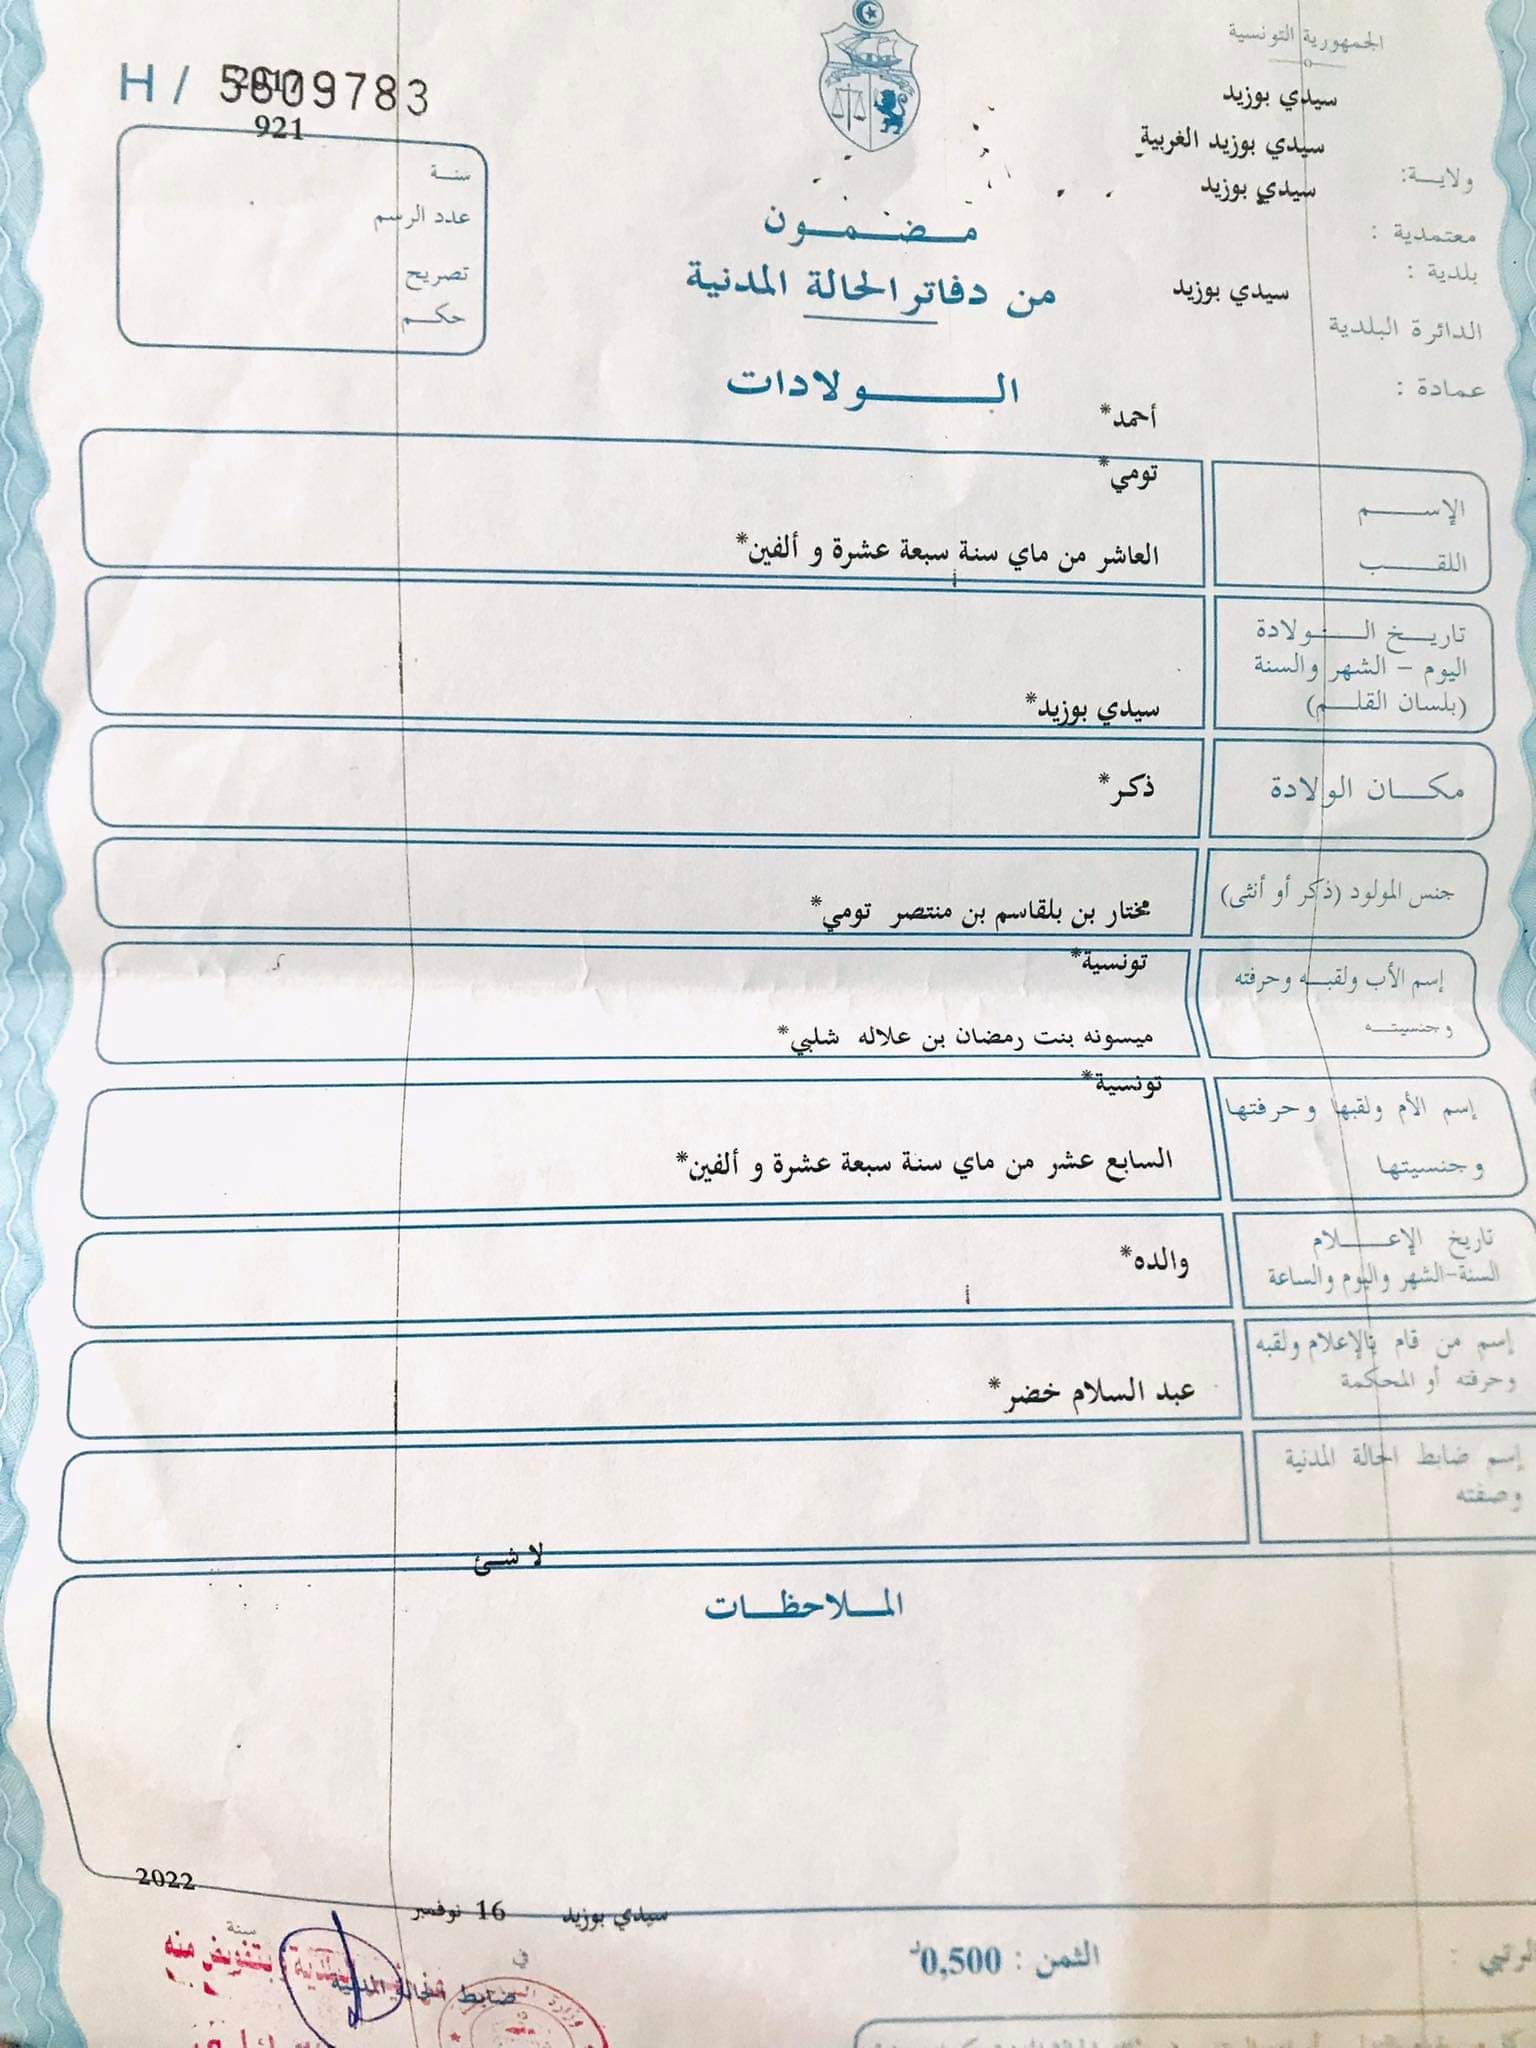 الجمهورية التونسية
H / 5609783
2017
921
سيدي بوزيد
سيدي بوزيد الغربية
ولاية:
سيدي بوزيد
معتمدية :
بلدية :
سيدي بوزيد
الدائرة البلدية
عمادة :
سنة
عدد الرسم
تصريح
حكم
مضمون
من دفاتر الحالة المدنية
الولادات
أحمد*
تومي*
الإسم
اللقب
العاشر من ماي سنة سبعة عشرة و ألفين*
تاريخ الولادة
اليوم - الشهر والسنة
(بلسان القلم)
سيدي بوزيد*
مكان الولادة
ذكر*
جنس المولود (ذكر أو أنثى)
مختار بن بلقاسم بن منتصر تومي*
تونسية*
إسم الأب ولقبه وحرفته
وجنسيته
ميسونه بنت رمضان بن علاله شلبي*
تونسية*
إسم الأم ولقبها وحرفتها
وجنسيتها
السابع عشر من ماي سنة سبعة عشرة و ألفين*
تاريخ الإعلام
السنة-الشهر واليوم والساعة
والده*
إسم من قام بالإعلام ولقبه
وحرفته أو المحكمة
عبد السلام خضر*
إسم ضابط الحالة المدنية
وصفته
لا شئ
الملاحظات
2022
سيدي بوزيد 16 نوفمبر
في سنة
بتفويض منه
ضابط الحالة المدنية
الثمن : 0,500 د